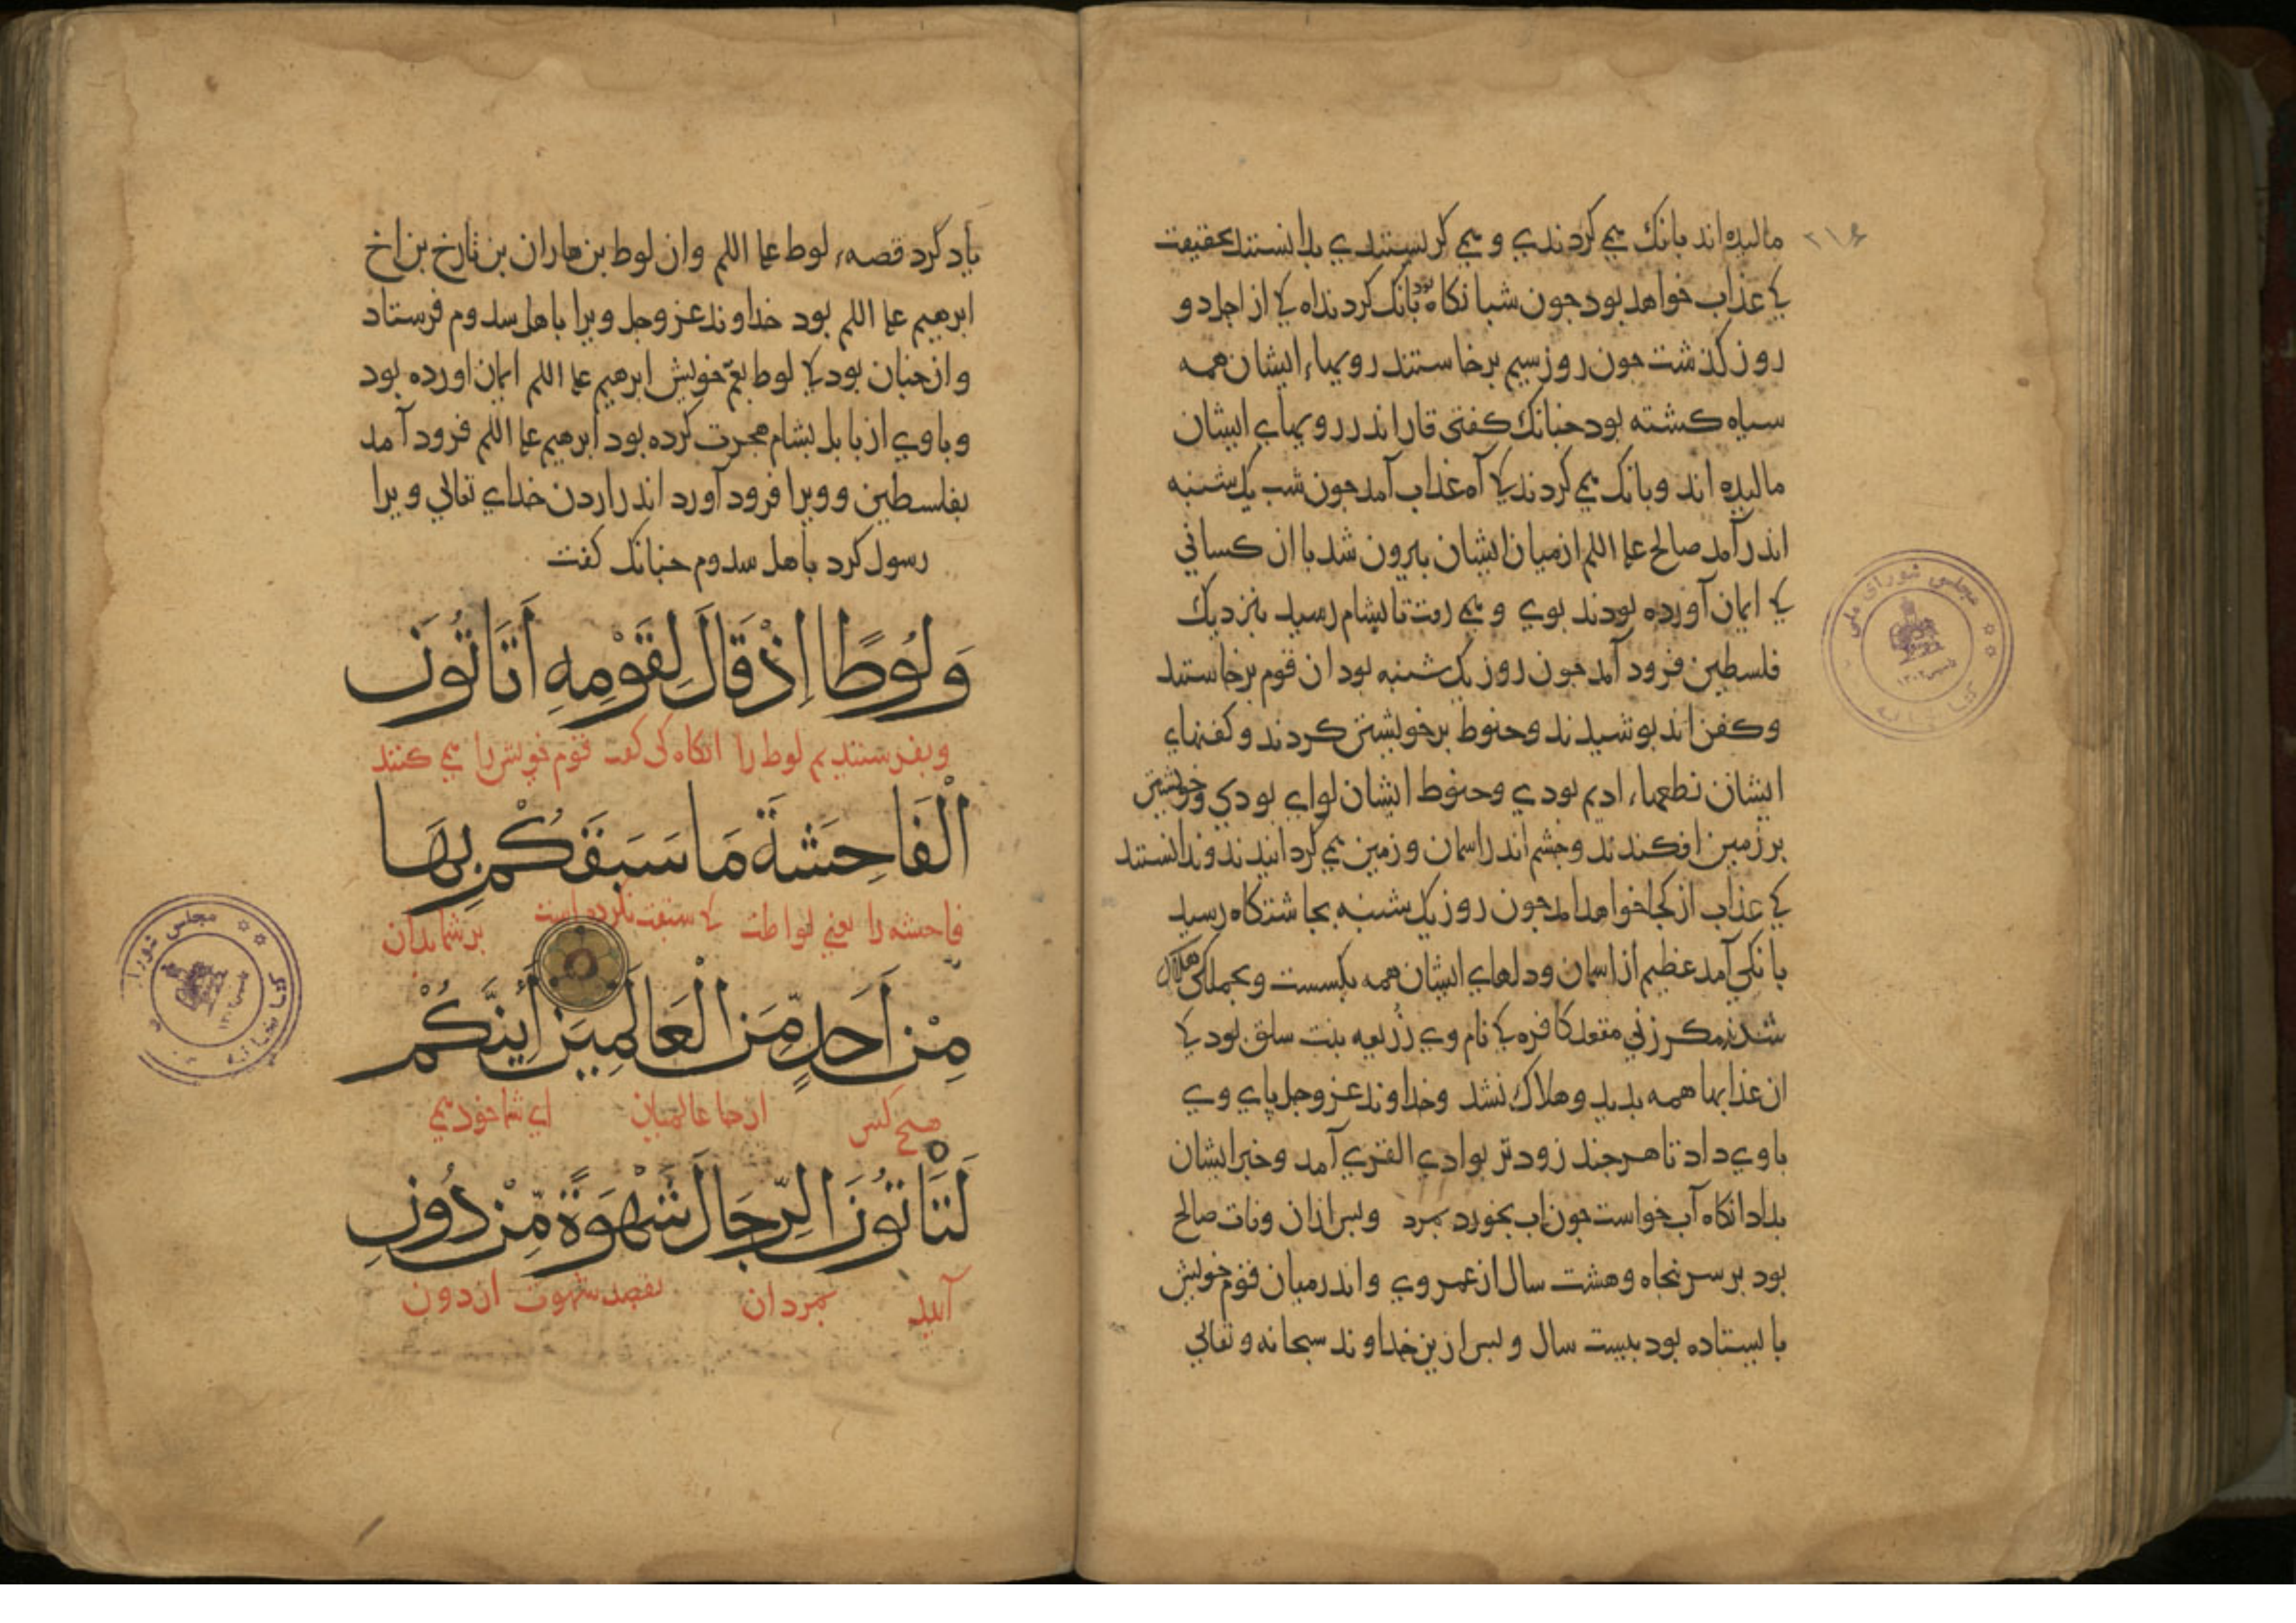 ۲۱۶
مالیده اند بانک می کردندی و می کریستندی بدانستند بحقیقت
کی عذاب خواهد بود جون شبانکاه بود بانک کردند اه کی از اجل دو
روز کذشت جون روز سیم برخاستند رویهاء ایشان همه
سیاه کشته بود جنانک کفتی قار اندر رویهاء ایشان
مالیده اند و بانک می کردند کی آه عذاب آمد جون شب یک شنبه
اندر آمد صالح علم اللم از میان ایشان بیرون شد با ان کسانی
کی ایمان آورده بودند بوی و می رفت تا بشام رسید بنزدیک
فلسطین فرود آمد جون روز یک شنبه بود ان قوم برخاستند
و کفن اند بوشیدند و حنوط بر خویشتن کردند و کفنهاء
ایشان نطعهاء ادیم بودی و حنوط ایشان لوای بودی و خویشتن
بر زمین افکندند و جشم اندر اسمان و زمین می کردانیدند و ندانستند
کی عذاب از کجا خواهد امد جون روز یک شنبه بجاشتکاه رسید
بانکی آمد عظیم از اسمان و دلهاء ایشان همه بکسست و بجملکی هلاک
شدند مکر زنی مقعد کافره کی نام وی زریعه بنت سلق بود کی
ان عذابها همه بدید و هلاک نشد و خداوند عز و جل پای وی
باوی داد تا هرجند زودتر بوادی القری آمد و خبر ایشان
بداد انکاه آب خواست جون اب بخورد بمرد و بس ازان وفات صالح
بود بر سر بنجاه و هشت سال از عمر وی و اندر میان قوم خویش
بایستاده بود بیست سال و بس ازین خداوند سبحانه و تعالی
یاد کرد قصهء لوط علم اللم وان لوط بن هاران بن تارخ بن اخ
ابرهیم علم اللم بود خداوند عز و جل ویرا باهل سدوم فرستاد
و ازجنان بود کی لوط بعم خویش ابرهیم علم اللم ایمان اورده بود
و باوی از بابل بشام هجرت کرده بود ابرهیم علم اللم فرود آمد
بفلسطین و ویرا فرود آورد اندر اردن خدای تعالی ویرا
رسول کرد باهل سدوم جنانک کفت
وَلُوطًا اِذْ قَالَ لِقَوْمِهِ اَتَاتُونَ
و بفرستندیم لوط را انکاه کی کفت قوم خویش را می کنند
الْفَاحِشَةَ مَا سَبَقَكُمْ بِهَا
فاحشه را یعنی لواطت کی سبقت نکرده است بر شما بدان
مِنْ اَحَدٍ مِّنَ الْعَالَمِينَ أَئِنَّكُمْ
هیح کس از جما عالمیان ای شما خود می
لَتَأْتُونَ الرِّجَالَ شَهْوَةً مِّنْ دُونِ
آیید بمردان بقصد شهوت از دون
مجلس شورای ملی
کتابخانه
مجلس شورا
کتابخانه